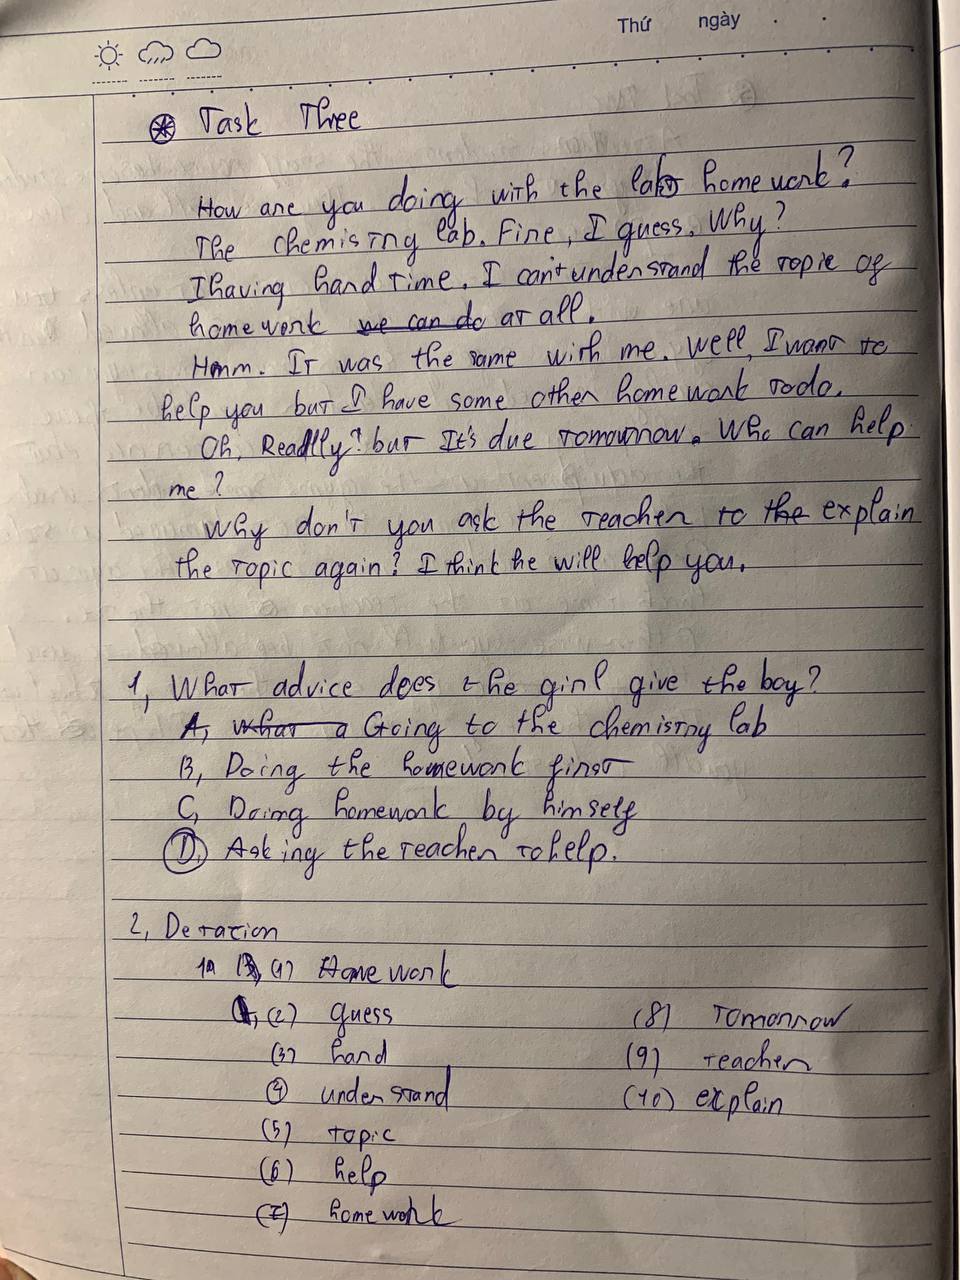 Thứ ngày . .
Task Three
How are you doing with the lab homework?
The chemistry lab. Fine, I guess. Why?
I having hard time. I can't understand the topic of
homework we can do at all.
Hmm. It was the same with me. Well, I want to
help you but I have some other homework to do.
Oh, Really? but It's due tomorrow. Who can help
me?
Why don't you ask the teacher to the explain
the topic again? I think he will help you.
1, What advice does the girl give the boy?
A, what a Going to the chemistry lab
B, Doing the homework first
C, Doing homework by himself
D, Asking the teacher to help.
2, Detation
(1) Homework
(2) guess (8) Tomorrow
(3) hard (9) teacher
(4) understand (10) explain
(5) topic
(6) help
(7) homework